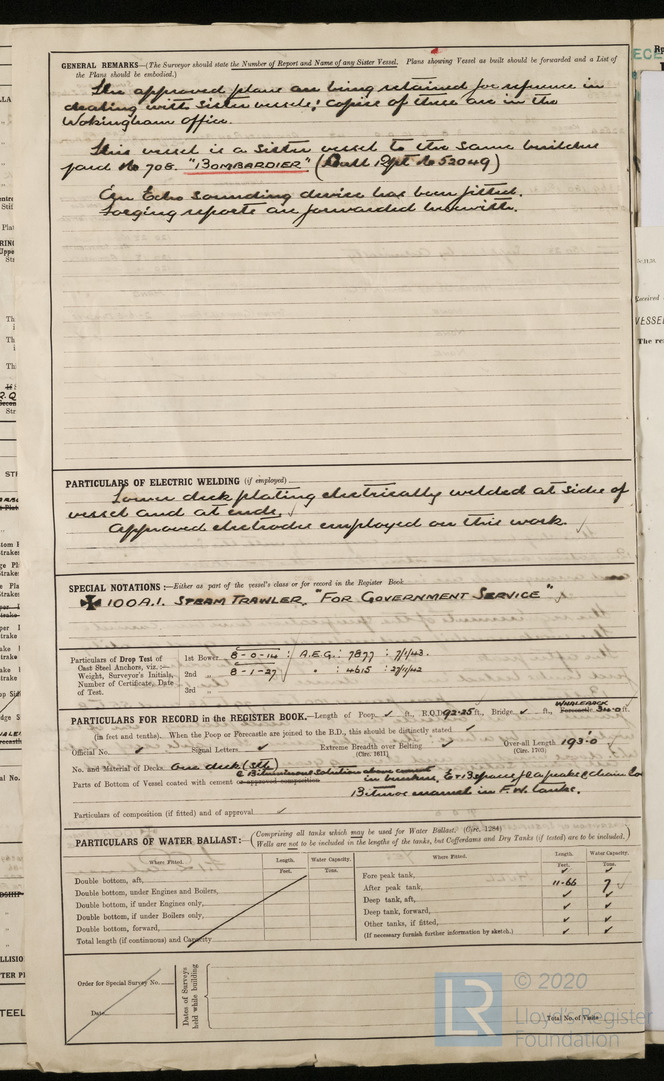 GENERAL REMARKS—(The Surveyor should state the Number of Report and Name of any Sister Vessel. Plans showing Vessel as built should be forwarded and a List of
the Plans should be embodied.)
The approved plans are being retained for reference in
dealing with sister vessels; copies of these are in the
Wokingham office.
This vessel is a sister vessel to the same builders
yard No 708. "BOMBARDIER" (Hull Rpt No 52049)
An Echo sounding device has been fitted.
Forging reports are forwarded herewith.
PARTICULARS OF ELECTRIC WELDING (if employed)
Lower deck plating electrically welded at sides of
vessel and at ends.
Approved electrodes employed on this work.
SPECIAL NOTATIONS:—Either as part of the vessel's class or for record in the Register Book
✠ 100A.1. STEAM TRAWLER, "FOR GOVERNMENT SERVICE"
Particulars of Drop Test of
Cast Steel Anchors, viz.:—
Weight, Surveyor's Initials,
Number of Certificate, Date
of Test.
1st Bower 8-0-14 : A.E.G. : 7877 : 7/1/43.
2nd " 8-1-27 " : 4615 :
3rd "
PARTICULARS FOR RECORD in the REGISTER BOOK.—Length of Poop ✓ ft., R.Q.D. 92.25 ft., Bridge ✓ ft., WHALEBACK Forecastle 34.0 ft.
(in feet and tenths). When the Poop or Forecastle are joined to the B.D., this should be distinctly stated ✓
Official No. ✓ Signal Letters ✓ Extreme Breadth over Belting ✓ Over-all Length 193.0
(Circ. 1611) (Circ. 1703)
No. and Material of Decks One deck (Stl)
Parts of Bottom of Vessel coated with cement or approved composition
Bituminous solution above cement in bunkers,
Bitumor enamel in F.W. tanks.
Particulars of composition (if fitted) and of approval ✓
PARTICULARS OF WATER BALLAST:— (Comprising all tanks which may be used for Water Ballast. (Circ. 1284)
Wells are not to be included in the lengths of the tanks, but Cofferdams and Dry Tanks (if tested) are to be included.)
Where Fitted. Length. Water Capacity. Where Fitted. Length. Water Capacity.
Feet. Tons. Feet. Tons.
Double bottom, aft, Fore peak tank, ✓ ✓
Double bottom, under Engines and Boilers, After peak tank, 11.66 7 ✓
Double bottom, if under Engines only, Deep tank, aft, ✓ ✓
Double bottom, if under Boilers only, Deep tank, forward, ✓ ✓
Double bottom, forward, Other tanks, if fitted, ✓ ✓
Total length (if continuous) and Capacity (If necessary furnish further information by sketch.) ✓ ✓
Order for Special Survey No.
Date
Dates of Surveys
held while building
Total No. of Visits
© 2020
LR
Lloyd's Register
Foundation